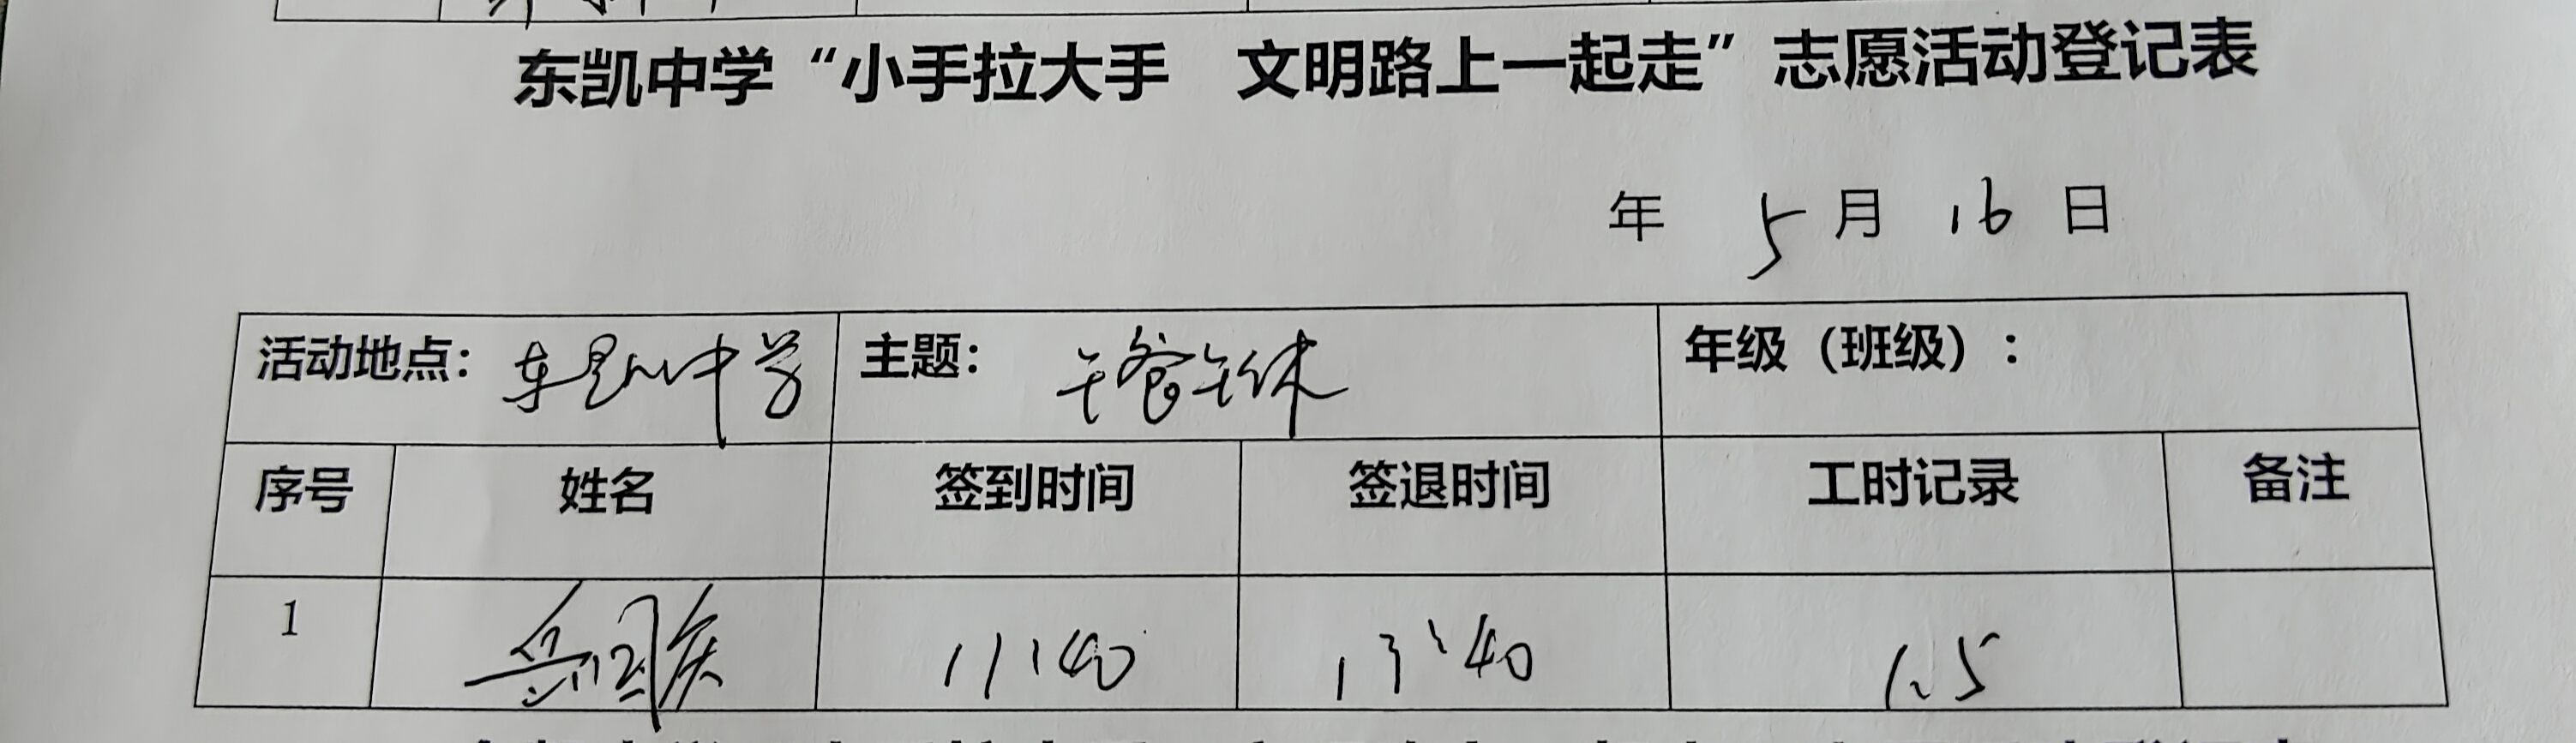 东凯中学“小手拉大手 文明路上一起走”志愿活动登记表
年 5月 16日
活动地点：东凯中学 主题：午餐午休 年级（班级）：
序号 姓名 签到时间 签退时间 工时记录 备注
1 11:40 13:40 1.5